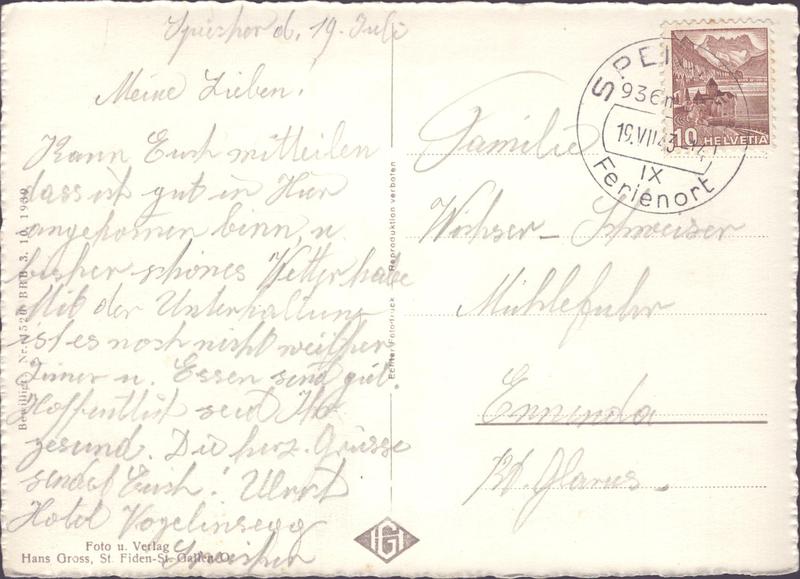 Speicher d. 19. Juli
Meine Lieben.
Kann Euch mitteilen
dass ist gut in Hier
angekomen binn, u.
bisher schönes Wetter habe
Mit der Unterhaltung
ist es noch nicht weit her
Zimer u. Essen sind gut.
Hoffentlich seid Ihr
gesund. Die herz. Grüsse
sendet Euch!
Hotel Vögelinsegg
Speicher
Familie
Wichser - Schweizer
Mühlefuhr
Ennenda
Kt. Glarus.
SPEI
936m
19.VII.43
IX
Ferienort
10 HELVETIA
Bewilligt Nr. 1526 BRB 3. 10. 1939
Echter Fotodruck Reproduktion verboten
Foto u. Verlag
Hans Gross, St. Fiden-St. Gallen O.
HG